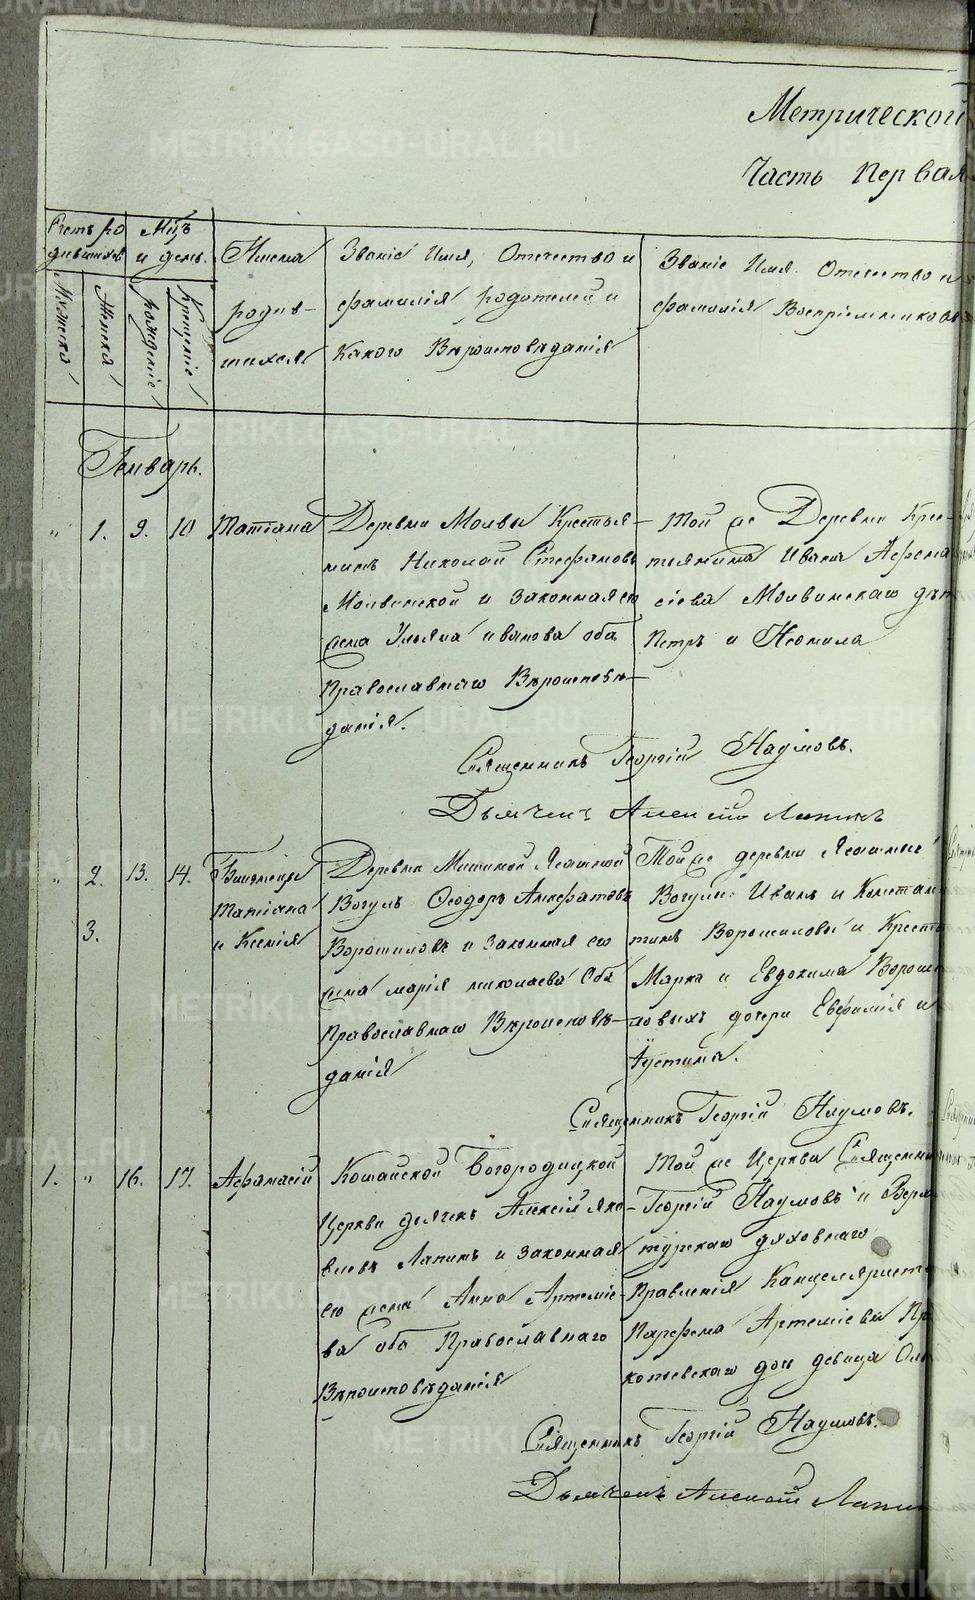 Метрической
Часть Первая
Счетъ ро
дившихся
Мужеска
Женска
Мцъ
и день.
рожденіе
Крещеніе
Имена
родив-
шихся
Званіе Имя, Отечество и
фамилія родителей и
Какого Вѣроисповѣданія
Званіе Имя Отечество и
фамилія Воспріемниковъ
Генварь.
" 1. 9. 10 Татіана
Деревни Молвы Крестья-
нинъ Николай Стефановъ
Молвинской и законная его
жена Ульяна иванова оба
Православнаго Вѣроисповѣ-
данія.
Той же Деревни Крес-
тьянина Ивана Афона
сіева Молвинскаго дѣти
Петръ и Неонила
Священникъ Георгій Наумовъ.
Дьячекъ Алексѣй Лапинъ
" 2. 13. 14. Близнецы
3. Татіана
и Ксенія
Деревни Митиной Ясашной
Вогулъ Ѳеодоръ Анфатовъ
Ворошиловъ и законная его
жена марія николаева Оба
Православнаго Вѣроисповѣ-
данія
Той же деревни Ясашные
Вогули: Иванъ и Констан
тинъ Ворошиловы и Кресть
Марка и Евдокима Вороши
ловыхъ дочери Евфимія и
Устинья.
Священникъ Георгій Наумовъ.
1. " 16. 17. Афанасій
Кошайской Богородицкой
Церкви дьячекъ Алексій Яко-
влевъ Лапинъ и законная
его жена Анна Артеміе-
ва оба Православнаго
Вѣроисповѣданія
Той же Церкви Священни
Георгій Наумовъ и Верхо
турскаго духовнаго
Правленія Канцеляриста
Парфена Артеміева Про
копьевскаго дочь девица Оль
Священникъ Георгій Наумовъ.
Дьячекъ Алексѣй Лапин
METRIKI.GASO-URAL.RU